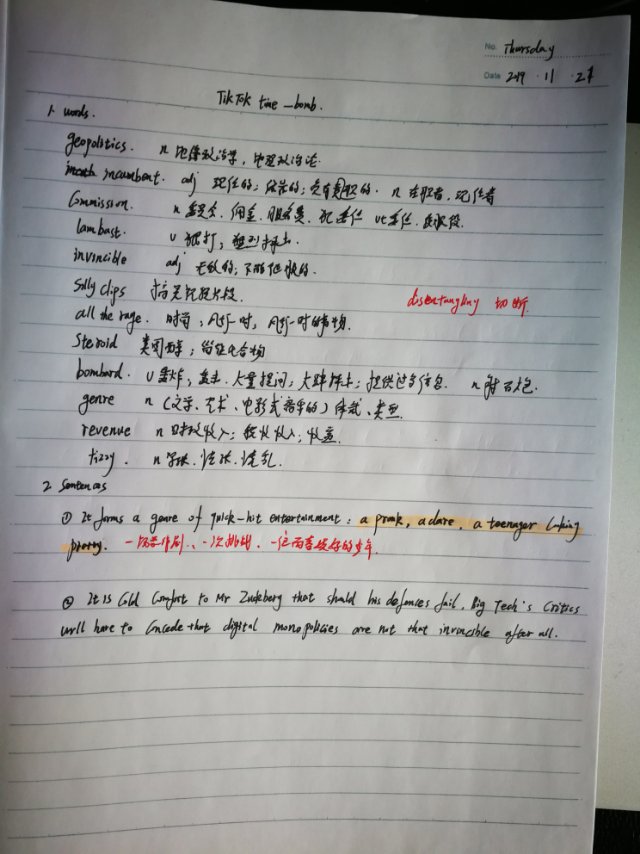 No. Thursday
Date 2019 · 11 · 21
TikTok time-bomb.
1. words.
geopolitics. n 地缘政治学,地理政治论
incumbent. adj 现任的;依靠的;负有责任的. n 在职者,现任者
Commission. n 委员会,佣金,服务费,犯,委任 vt 委任,
lambast. v 狠打,猛烈抨击.
invincible adj 无敌的;不能征服的.
Silly clips 搞笑视频片段.
disentangling 切断.
all the rage. 时尚,风行一时,风行一时的事物.
Steroid 类固醇;甾族化合物
bombard. v 轰炸,轰击,大量提问;大肆抨击;提供过多信息. n 射石炮.
genre n (文学、艺术、电影或音乐的)体裁、类型
revenue n 财政收入;税收收入;收益
tizzy. n 慌乱.
2 Sentences
① It forms a genre of quick-hit entertainment: a prank, a dare, a teenager looking
pretty. 一场恶作剧、一次挑战、一位面容姣好的少年.
② It is Cold Comfort to Mr Zuckberg that should his defences fail, Big Tech's Critics
will have to Concede that digital monopolies are not that invincible after all.